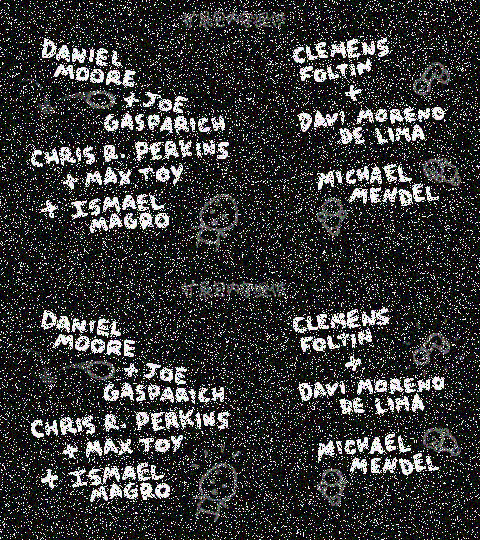 DANIEL
MOORE
+ JOE
GASPARICH
CHRIS R. PERKINS
+ MAX TOY
+ ISMAEL
MAGRO
CLEMENS
FOLTIN
+
DAVI MORENO
DE LIMA
MICHAEL
MENDEL
DANIEL
MOORE
+ JOE
GASPARICH
CHRIS R. PERKINS
+ MAX TOY
+ ISMAEL
MAGRO
CLEMENS
FOLTIN
+
DAVI MORENO
DE LIMA
MICHAEL
MENDEL